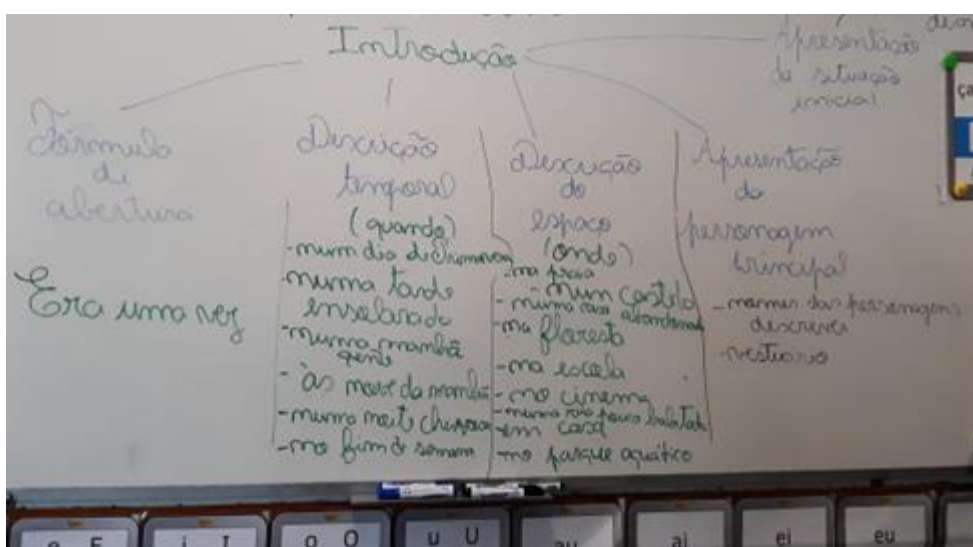 Introdução
Apresentação
da situação
inicial
Fórmula
de
abertura
Era uma vez
Descrição
temporal
(quando)
-num dia de
-numa tarde
ensolarada
-numa manhã
-às nove da manhã
-numa noite chuvosa
-no fim de semana
Descrição
do
espaço
(onde)
-na praia
-num castelo
-numa casa abandonada
-na floresta
-na escola
-no cinema
-numa rua pouco
-em casa
-no parque aquático
Apresentação
da
personagem
principal
-nomes das personagens
descrever
-vestuário
e E
i I
o O
u U
au
ai
ei
eu